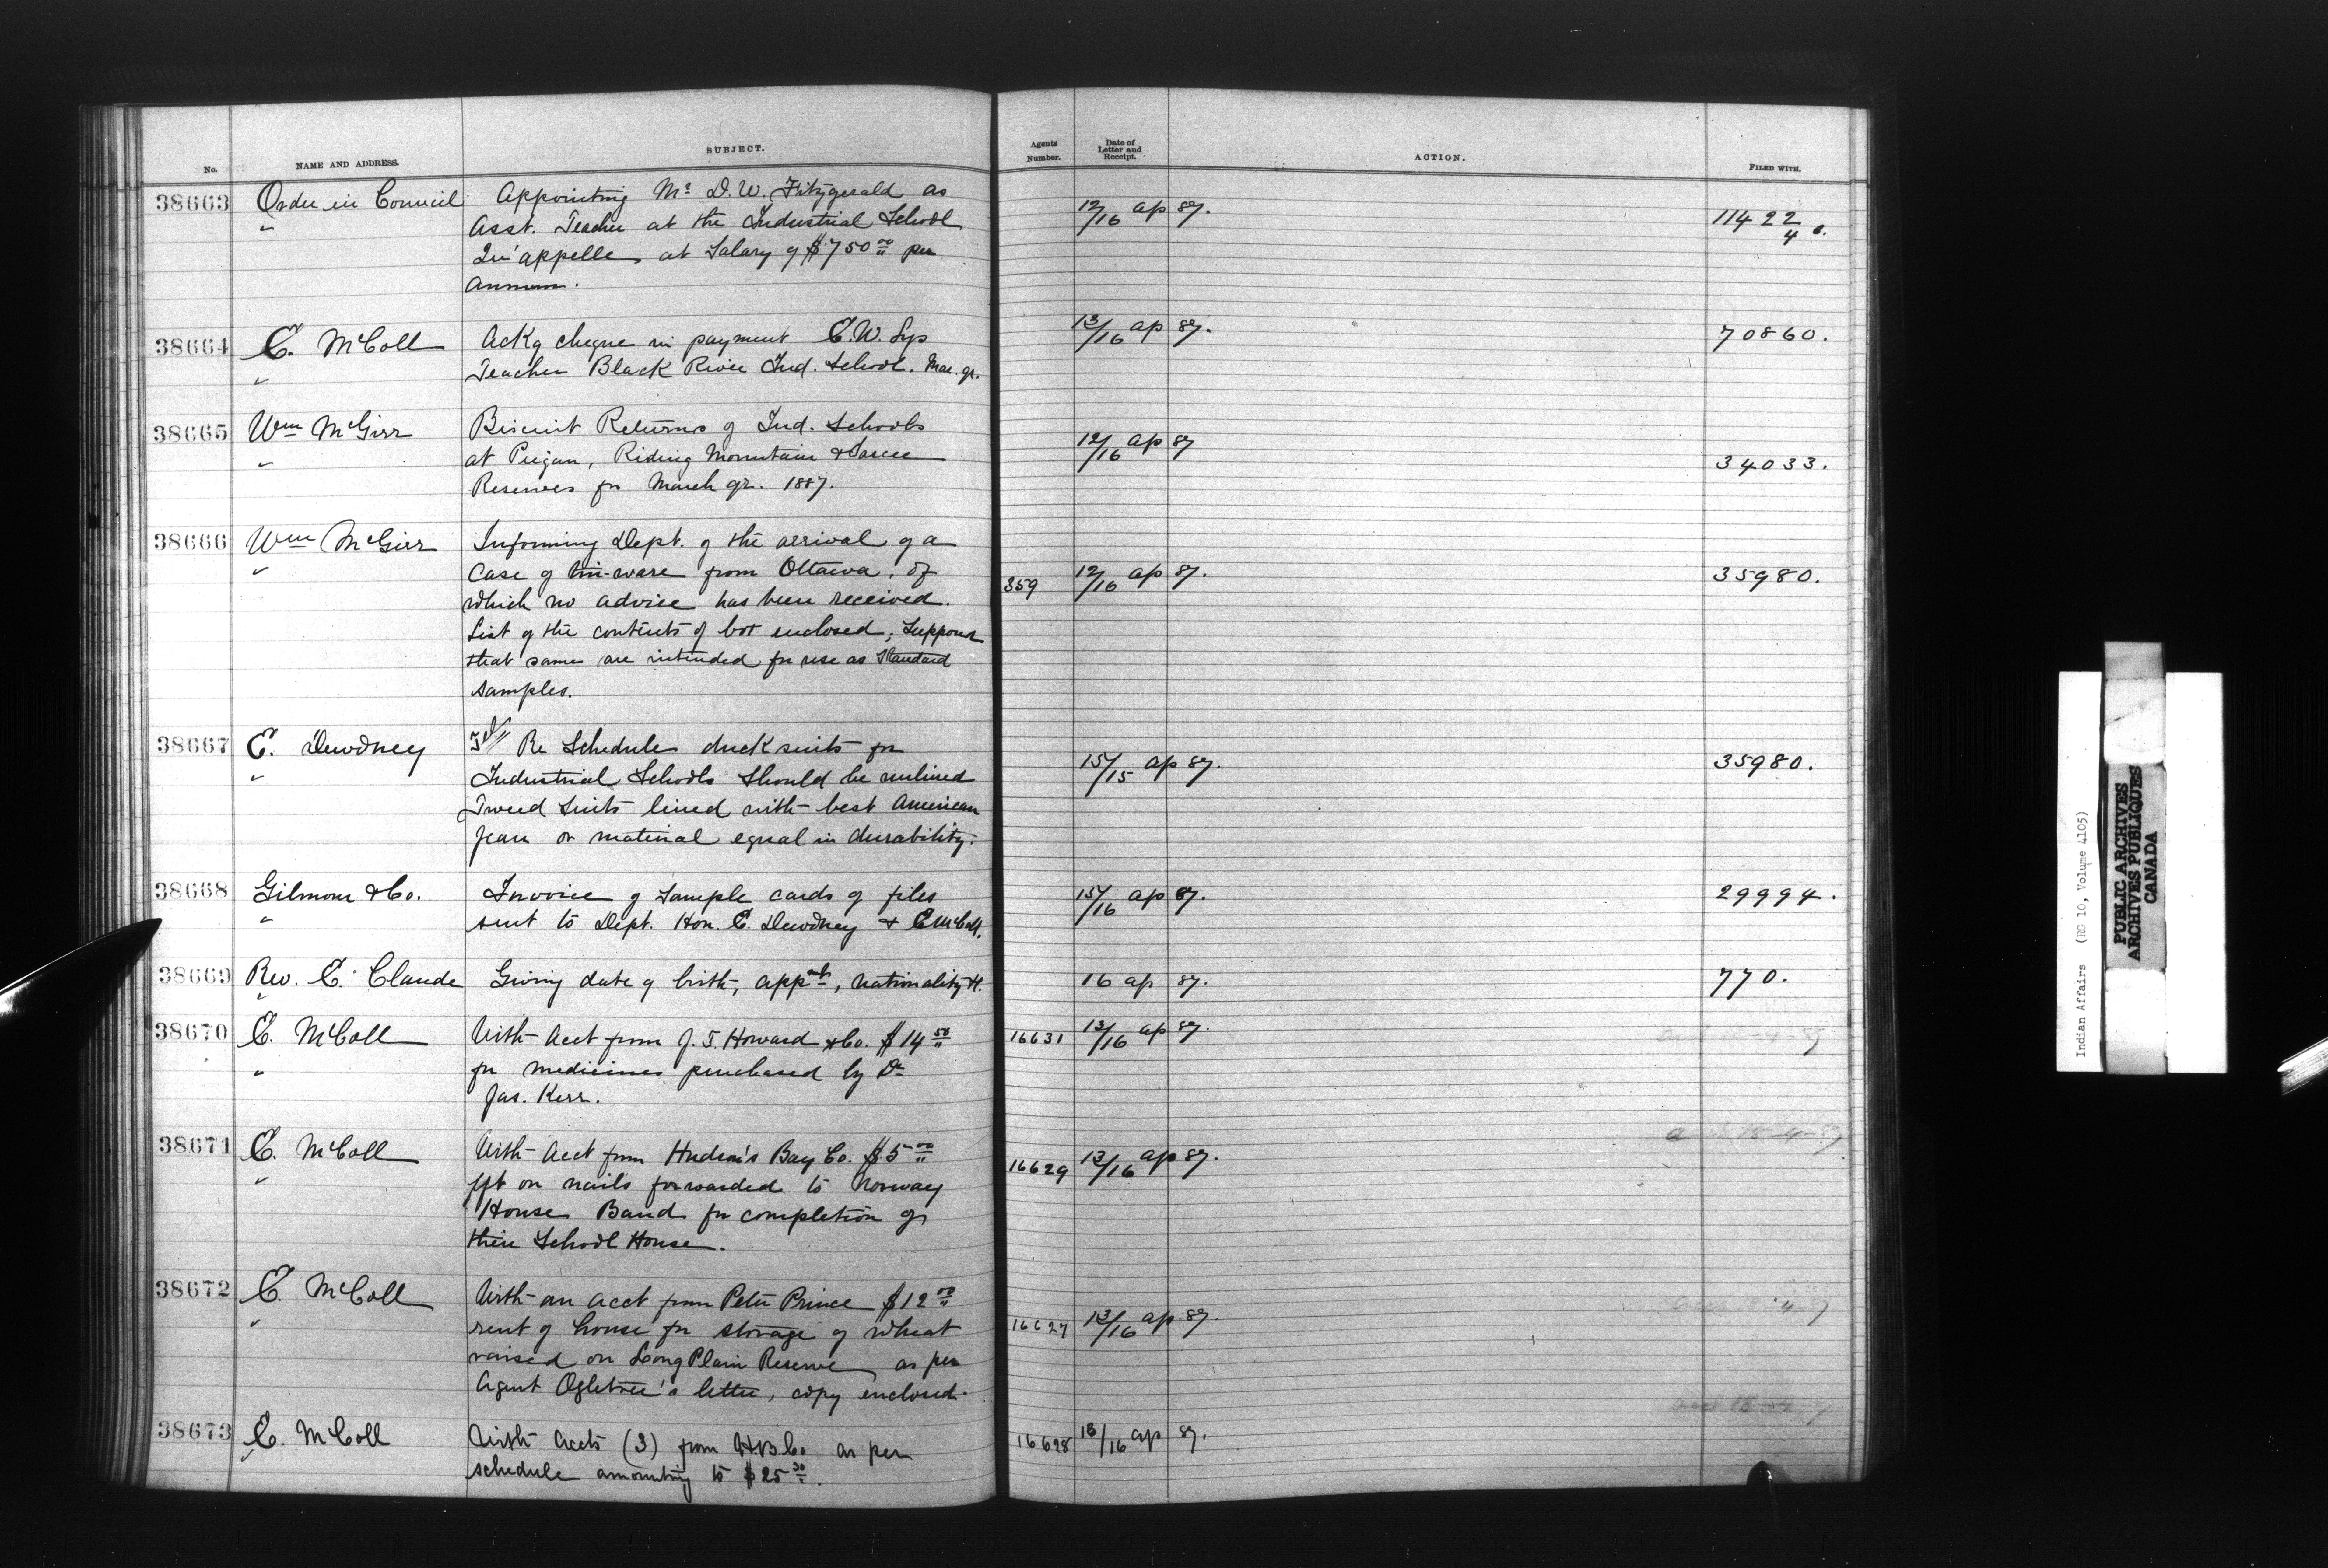 No. NAME AND ADDRESS. SUBJECT. Agents Number. Date of Letter and Receipt. ACTION. FILED WITH.
38663 Order in Council Appointing Mr D.W. Fitzgerald as 12/16 ap 87. 11422/4
" Asst. Teacher at the Industrial School
Qu'appelle, at Salary of $750.00 per
Annum.
38664 E. McColl Ackg cheque in payment E.W. 13/16 ap 87. 70860.
" Teacher Black River Ind. School. Mar. qr.
38665 Wm McGirr Biscuit Returns of Ind. Schools 12/16 ap 87
" at Piegan, Riding Mountain & Sarcee 34033.
Reserves for March qr. 1887.
38666 Wm McGirr Informing Dept. of the arrival of a
" Case of tin-ware from Ottawa, of 359 12/16 ap 87. 35980.
which no advice has been received.
List of the contents of box enclosed, Supposes
that same are intended for use as Standard
samples.
38667 E. Dewdney Tel// Re Schedule duck suits for 15/15 ap 87. 35980.
" Industrial Schools Should be unlined
Tweed Suits lined with best American
Jean or material equal in durability.
38668 Gilmour & Co. Invoice of Sample cards of files 15/16 ap 87. 29994.
" sent to Dept. Hon. E. Dewdney & E McColl.
38669 Rev. E. Claude Giving date of birth, appmt, nationality &. 16 ap 87. 770.
"
38670 E. McColl With Acct from J. F. Howard & Co. $14.50 16631 13/16 ap 87.
" for medicines purchased by Dr
Jas. Kerr.
38671 E. McColl With Acct from Hudson's Bay Co. $5.00 16629 13/16 ap 87.
" frt on nails forwarded to Norway
House Band for completion of
their School House.
38672 E. McColl With an acct from Peter Prince $12.00
" rent of house for storage of wheat 16627 13/16 ap 87.
raised on Long Plain Reserve as per
Agent Ogletree's letter, copy enclosed.
38673 E. McColl With Accts (3) from H.B. Co as per 16628 13/16 ap 87.
" schedule amounting to $25.30.
Indian Affairs (RG 10, Volume 4105)
PUBLIC ARCHIVES
ARCHIVES PUBLIQUES
CANADA